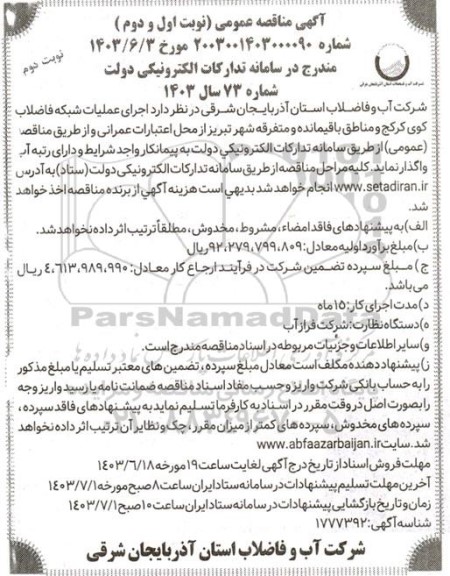 آگهی مناقصه عمومی (نوبت اول و دوم )
شماره ۲۰۰۳۰۰۱۴۰۳۰۰۰۰۹۰ مورخ ۱۴۰۳/۶/۳
نوبت دوم
مندرج در سامانه تدارکات الکترونیکی دولت
شماره ۷۳ سال ۱۴۰۳
شرکت آب و فاضلاب استان آذربایجان شرقی در نظر دارد اجرای عملیات شبکه فاضلاب
کوی کرکج و مناطق باقیمانده و متفرقه شهر تبریز از محل اعتبارات عمرانی و از طریق مناقصه
(عمومی) از طریق سامانه تدارکات الکترونیکی دولت به پیمانکار واجد شرایط و دارای رتبه آب
واگذار نماید. کلیه مراحل مناقصه از طریق سامانه تدارکات الکترونیکی دولت (ستاد) به آدرس
www.setadiran.ir انجام خواهد شد بدیهی است هزینه آگهی از برنده مناقصه اخذ خواهد
شد.
الف) به پیشنهادهای فاقد امضاء، مشروط، مخدوش، مطلقاً ترتیب اثر داده نخواهد شد.
ب) مبلغ برآورد اولیه معادل: ۹۲،۲۷۹،۷۹۹،۸۰۹ ریال
ج) مبلغ سپرده تضمین شرکت در فرآیند ارجاع کار معادل: ۴،۶۱۳،۹۸۹،۹۹۰ ریال
می‌باشد.
د) مدت اجرای کار: ۱۵ ماه
ه) دستگاه نظارت: شرکت فراز آب
و) سایر اطلاعات و جزئیات مربوطه در اسناد مناقصه مندرج است.
ز) پیشنهاد دهنده مکلف است معادل مبلغ سپرده، تضمین های معتبر تسلیم یا مبلغ مذکور
را به حساب بانکی شرکت واریز و حسب مفاد اسناد مناقصه ضمانت نامه یا رسید واریز وجه
را بصورت اصل در وقت مقرر در اسناد به کارفرما تسلیم نماید به پیشنهادهای فاقد سپرده،
سپرده های مخدوش، سپرده های کمتر از میزان مقرر، چک و نظایر آن ترتیب اثر داده نخواهد
شد. سایت www.abfaazarbaijan.ir
مهلت فروش اسناد از تاریخ درج آگهی لغایت ساعت ۱۹ مورخه ۱۴۰۳/۶/۱۸
آخرین مهلت تسلیم پیشنهادات در سامانه ستاد ایران ساعت ۸ صبح مورخه ۱۴۰۳/۷/۱
زمان و تاریخ بازگشایی پیشنهادات در سامانه ستاد ایران ساعت ۱۰ صبح ۱۴۰۳/۷/۱
شناسه آگهی: ۱۷۷۷۳۹۲
شرکت آب و فاضلاب استان آذربایجان شرقی
ParsNamadData